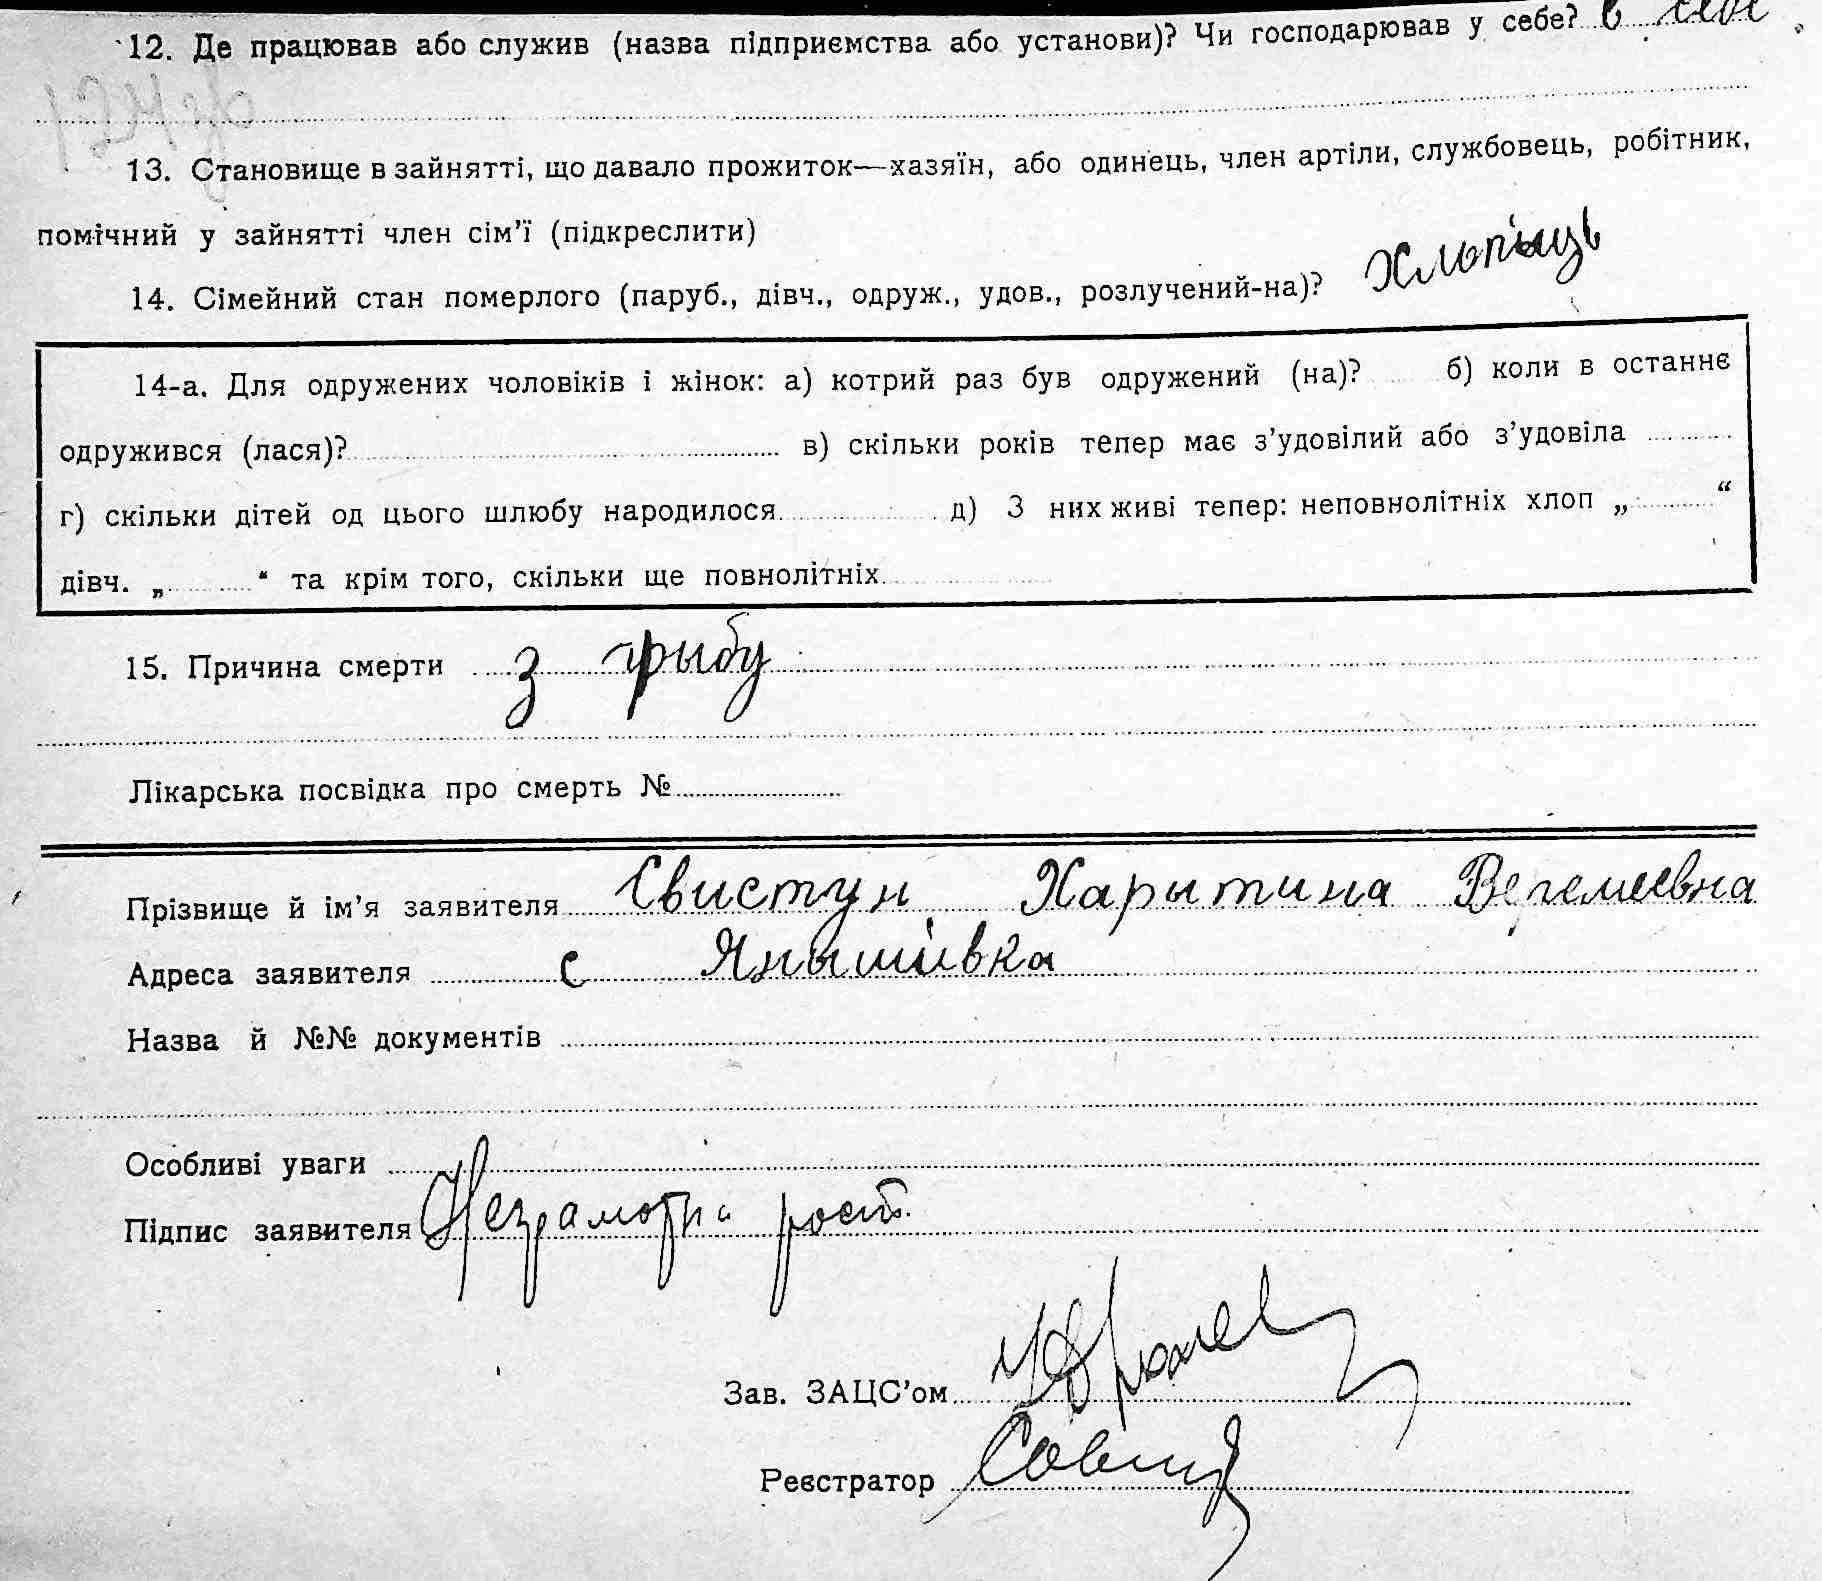 12. Де працював або служив (назва підприємства або установи)? Чи господарював у себе? в себе
13. Становище в зайнятті, що давало прожиток—хазяїн, або одинець, член артіли, службовець, робітник,
помічний у зайнятті член сім’ї (підкреслити)
14. Сімейний стан померлого (паруб., дівч., одруж., удов., розлучений-на)? Хлопіць
14-а. Для одружених чоловіків і жінок: а) котрий раз був одружений (на)? б) коли в останнє
одружився (лася)? в) скільки років тепер має з’удовілий або з’удовіла
г) скільки дітей од цього шлюбу народилося. д) З них живі тепер: неповнолітніх хлоп „ “
дівч. „ “ та крім того, скільки ще повнолітніх.
15. Причина смерти з грыбу
Лікарська посвідка про смерть №
Прізвище й ім’я заявителя Свистун Харытина
Адреса заявителя с Янышівка
Назва й №№ документів
Особливі уваги
Підпис заявителя Неграмотна
Зав. ЗАЦС’ом
Реєстратор